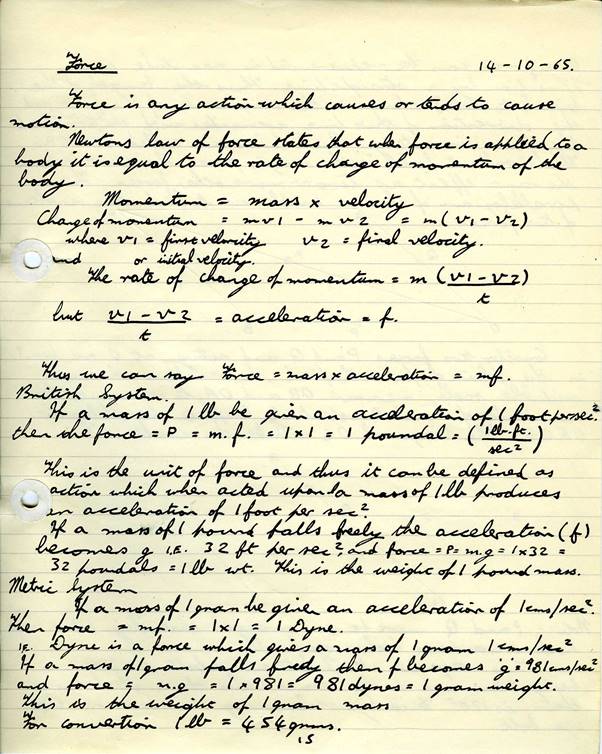 Force 14-10-65.
Force is any action which causes or tends to cause
motion.
Newtons law of force states that when force is applied to a
body it is equal to the rate of change of momentum of the
body.
Momentum = mass x velocity
Change of momentum = mv1 - mv2 = m(v1-v2)
where v1 = first velocity v2 = final velocity.
and or initial velocity.
The rate of change of momentum = m (v1-v2)/t
but v1-v2/t = acceleration = f.
Thus we can say Force = mass x acceleration = mf.
British System.
If a mass of 1 lb be given an acceleration of 1 foot per sec.²
then the force = P = m.f. = 1x1 = 1 poundal = (1 lb.ft./sec²)
This is the unit of force and thus it can be defined as
action which when acted upon a mass of 1 lb produces
an acceleration of 1 foot per sec.²
If a mass of 1 pound falls freely the acceleration (f)
becomes g I.E. 32 ft per sec² and force = P = m.g = 1x32 =
32 poundals = 1 lb wt. This is the weight of 1 pound mass.
Metric System
If a mass of 1 gram be given an acceleration of 1 cms/sec².
Then force = mf. = 1x1 = 1 Dyne.
I.E. Dyne is a force which gives a mass of 1 gram 1 cms/sec²
If a mass of 1 gram falls freely then f becomes 'g' = 981 cms/sec²
and force = m.g = 1 x 981 = 981 dynes = 1 gram weight.
This is the weight of 1 gram mass
For convertion 1 lb = 454 grms.
15